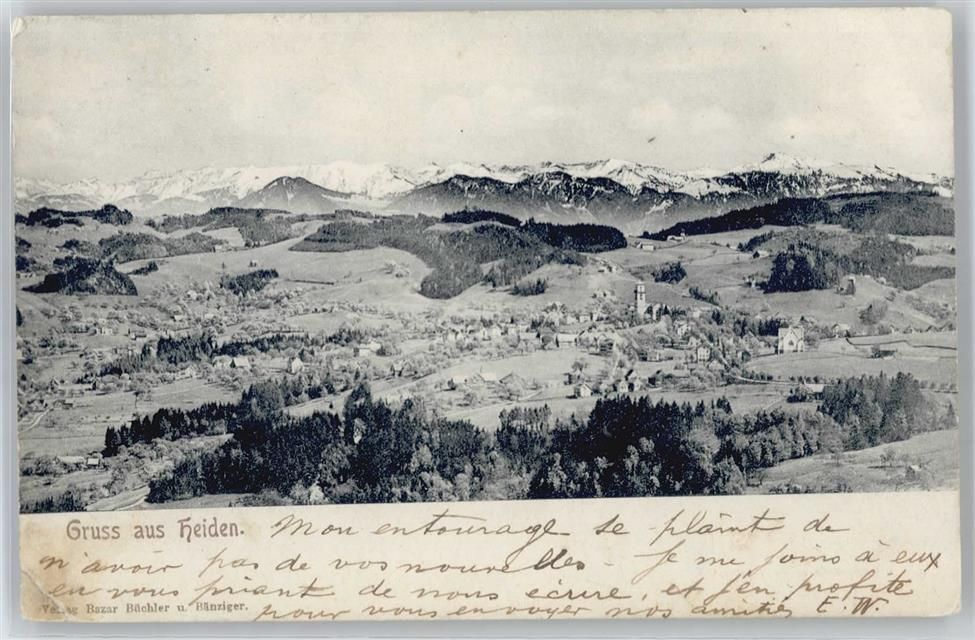 Gruss aus Heiden. Mon entourage se plaint de
n'avoir pas de vos nouvelles - Je me joins à eux
en vous priant de nous écrire, et j'en profite
Verlag Bazar Büchler u. Bänziger. pour vous envoyer nos amitiés E. W.